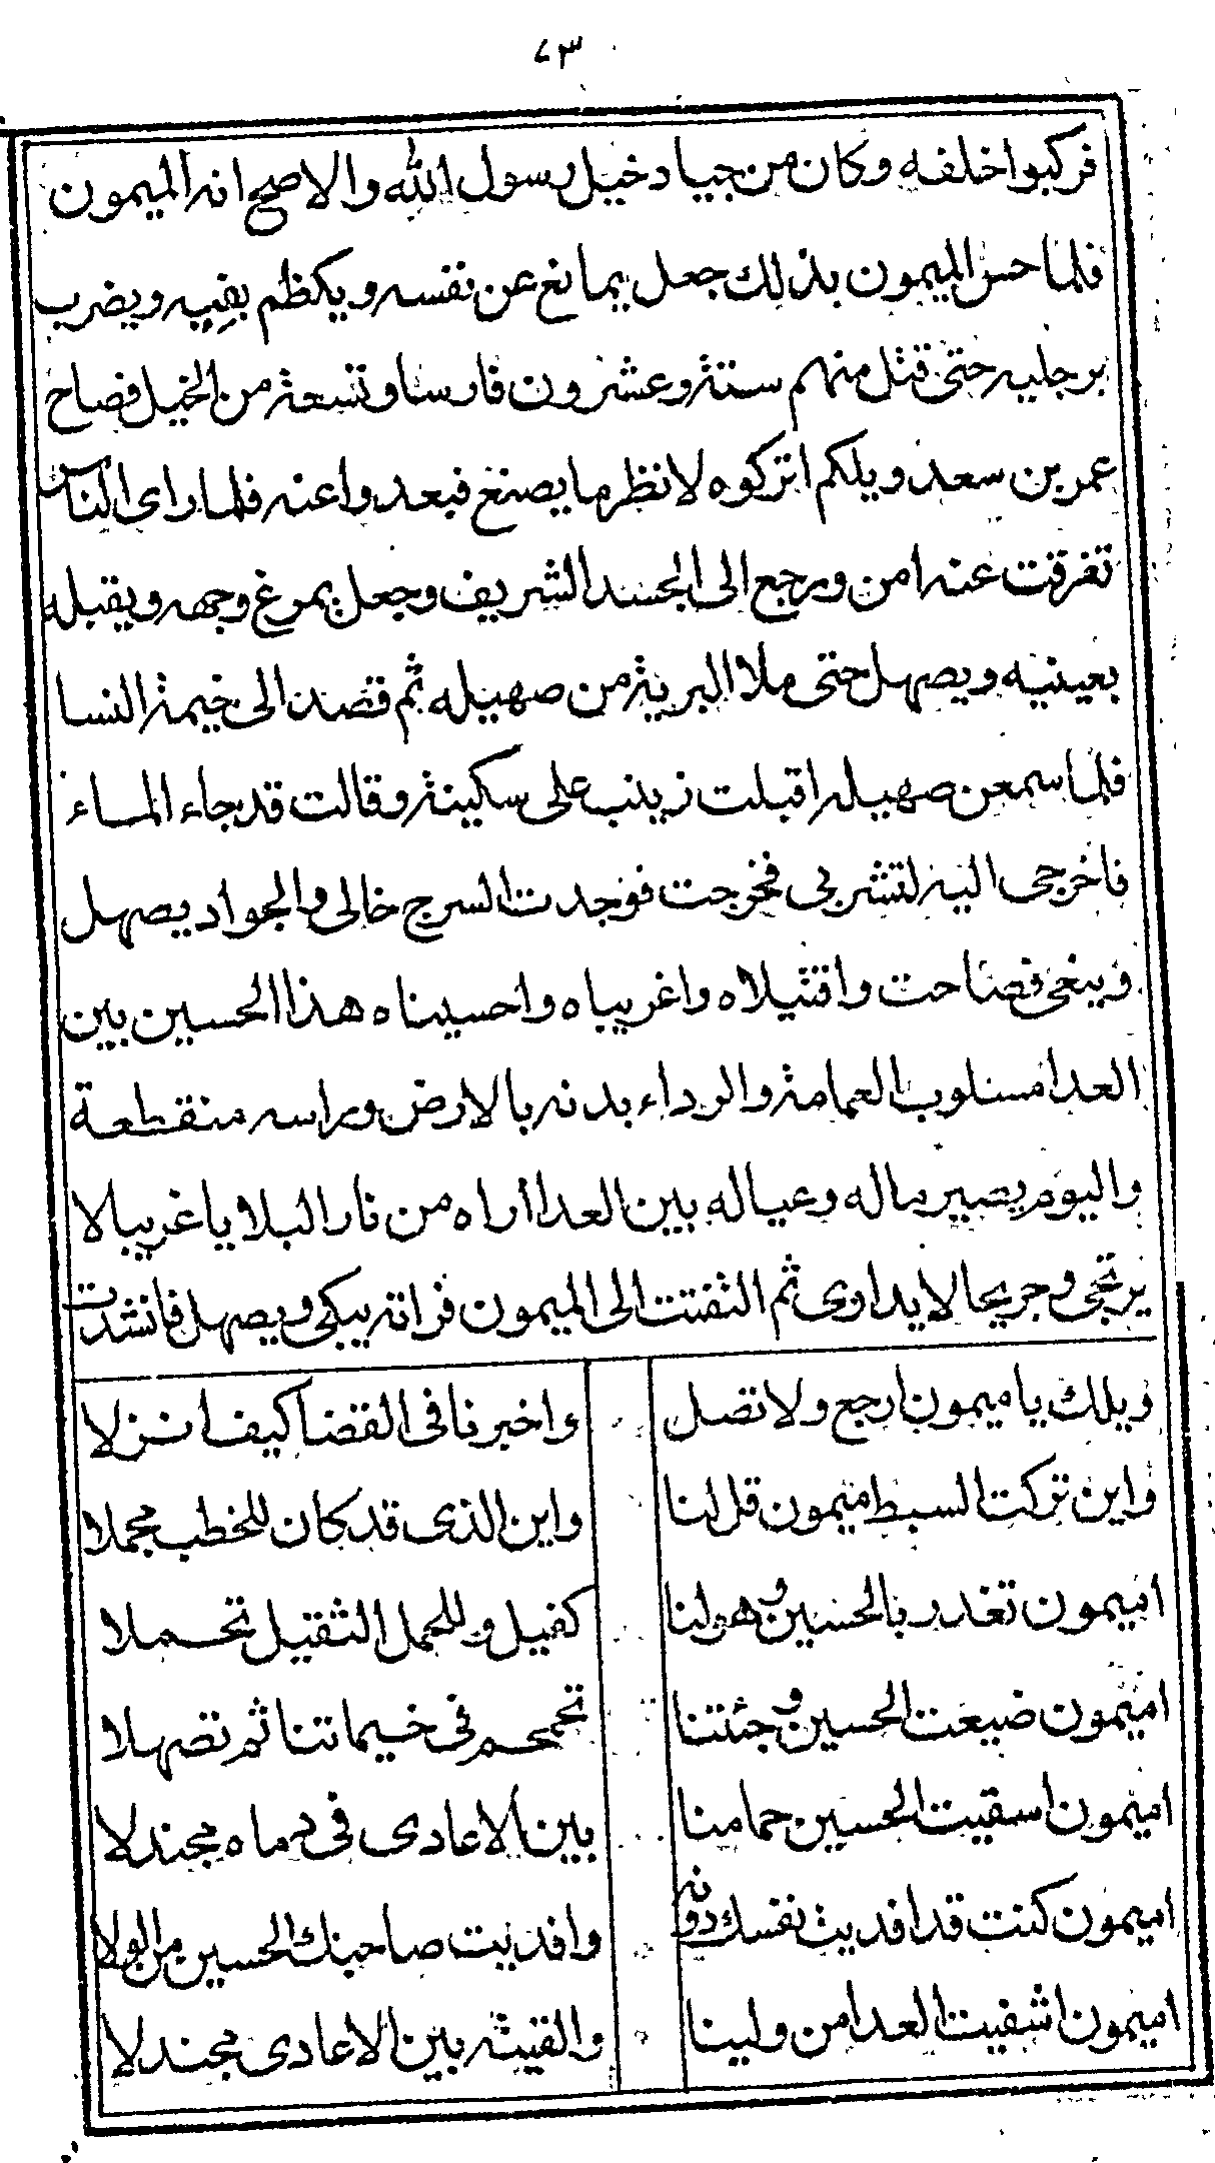 ٧٣
فركبوا خلفه وكان من جياد خيل رسول الله والاصح انه الميمون
فلما حس الميمون بذلك جعل يمانع عن نفسه ويكظم بفيه ويضرب
برجليه حتى قتل منهم ستة وعشرون فارسا وتسعة من الخيل فصاح
عمر بن سعد ويلكم اتركوه لانظر ما يصنع فبعدوا عنه فلما راى الناس
تفرقت عنه امن ورجع الى الجسد الشريف وجعل يمرغ وجهه ويقبله
بعينيه ويصهل حتى ملا البرية من صهيله ثم قصد الى خيمة النسا
فلما سمعن صهيله اقبلت زينب على سكينة وقالت قد جاء الماء
فاخرجى اليه لتشربى فخرجت فوجدت السرج خالى والجواد يصهل
وينعى فصاحت واقتيلاه واغريباه واحسيناه هذا الحسين بين
العدا مسلوب العمامة والرداء بدنه بالارض وراسه منقطعة
واليوم يصير ماله وعياله بين العدا اراه من نار البلا يا غريبا لا
يرتجى وجريحا لا يداوى ثم التفتت الى الميمون فراته يبكى ويصهل فانشدت
ويلك يا ميمون ارجع ولا تصل واخبرنا فى القضا كيف انزلا
واين تركت السبط ميمون قل لنا واين الذى قد كان للخطب مجملا
اميمون تغدر بالحسين وهو لنا كفيل وللحمل الثقيل تحملا
اميمون ضيعت الحسين وجئتنا تحمحم فى خيماتنا ثم تصهلا
اميمون اسقيت الحسين حمامنا بين الاعادى فى دماه مجندلا
اميمون كنت قد افديت نفسك دونه وافديت صاحبك الحسين من البلا
اميمون اشفيت العدا من ولينا والقيته بين الاعادى مجندلا